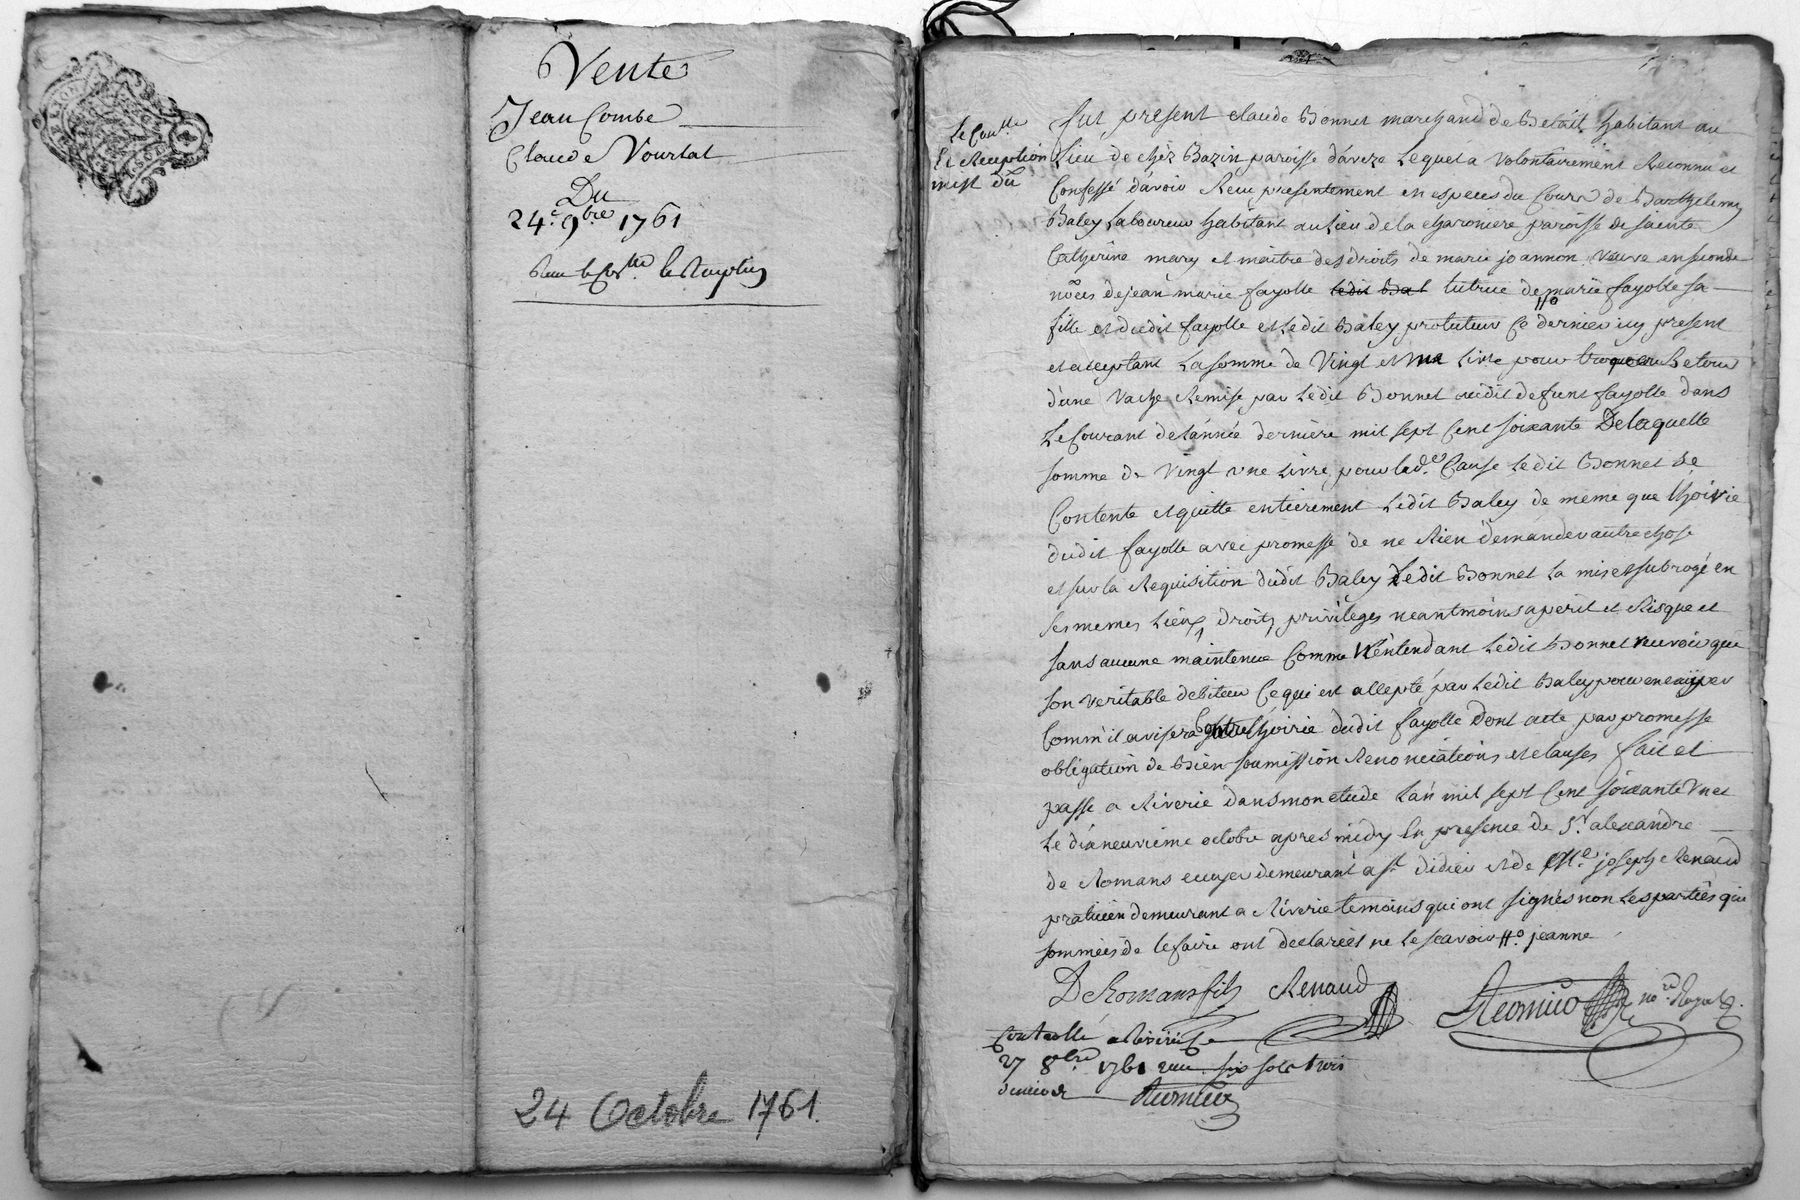 Vente
Jean Combe
Claude Vourlat
Du
24.e 9bre 1761
24 Octobre 1761.
Le Con.lle
Et Reception
m'est du
fut present claude Bonnet marchand de Betail habitant au
Lieu de chèz Bazin paroisse d'aveze Lequel a volontairement Reconnu et
Confessé d'avoir Receu presentement en especes du Cours de Barthelemy
Baley Laboureur habitant au Lieu de la charoniere paroisse de sainte
Catherine mary et maitre des droits de marie joannon veuve en seconde
nôces de jean marie fayolle ledit Bal tutrice de marie fayolle sa
fille et dudit fayolle et Ledit Baley protuteur Ce dernier icy present
et acceptant La somme de Vingt et une Livre pour Retour
d'une Vache Remise par Ledit Bonnet audit defunt fayolle dans
Le Courant de l'année derniere mil sept Cent soixante De laquelle
somme de Vingt une Livre pour lad.e Cause Ledit Bonnet se
Contente et quitte entierement Ledit Baley de meme que l'hoirie
dudit fayolle avec promesse de ne Rien demander autre chose
et sur la Requisition dudit Baley Ledit Bonnet La mis et subrogé en
ses memes Lieux, droits, privileges neantmoins a peril et Risque et
sans aucune maintenue Comme N'entendant Ledit Bonnet recevoir que
son veritable debiteur Ce qui est accepté par Ledit Baley pour en agir
Comm'il avisera Contre l'hoirie dudit fayolle Dont acte par promesse
obligation de Bien soumission Renonciations et clauses fait et
passé a Riverie dans mon etude L'an mil sept Cent soixante Un et
Le dixneuvieme octobre apres midy En presence de S.r alexandre
de Romans ecuyer demeurant a S.t didier et de M.e joseph Renaud
praticien demeurant a Riverie temoins qui ont signés non Les parties qui
sommées de le faire ont declarées ne Le scavoir #.o jeanne
DeRomans fils Renaud
no.re Royal
Controllé a Riverie Le
27 8bre 1761 Receu six sols trois
deniers